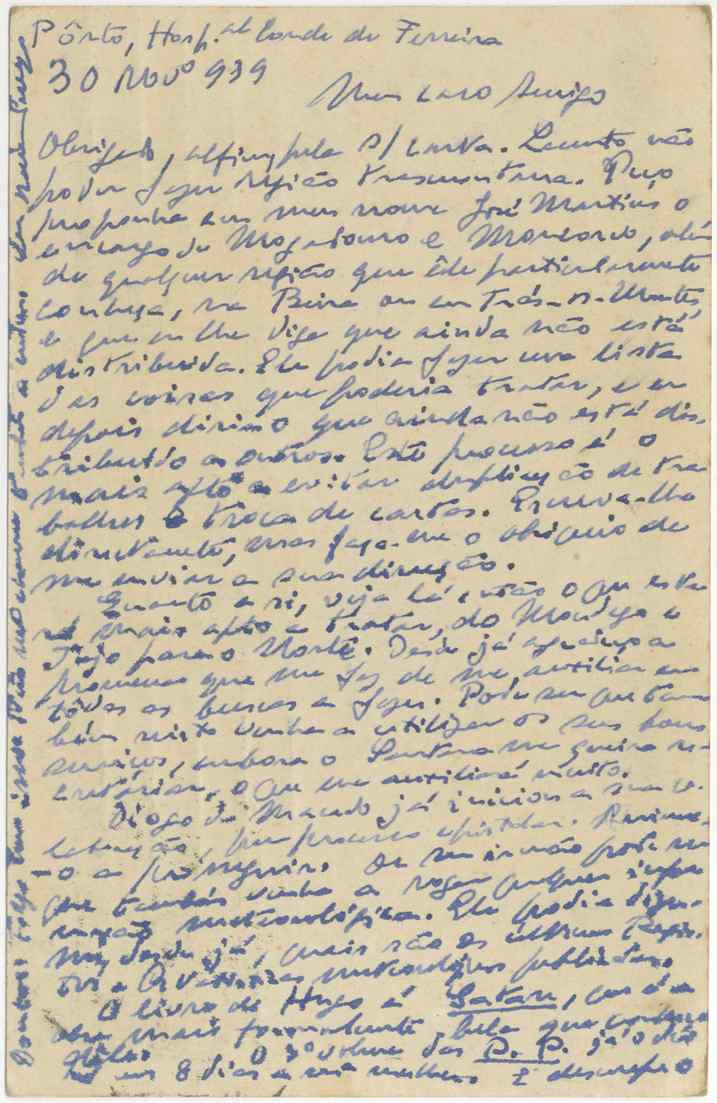 Pôrto, Hosp.al Conde de Ferreira
30 Novº 939
Meu caro Amigo
Obrigado, alfim, pela s/ carta. Lamento não
poder fazer região trasmontana. Peço
proponha em meu nome José Martins o
encargo de Mogadouro e Moncorvo, além
de qualquer região que êle particularmente
conheça, na Beira ou em Trás-os-Montes,
e que eu lhe diga que ainda não está
distribuida. Ele podia fazer uma lista
das coisas que poderia tratar, e eu
depois dir o que ainda não está dis-
tribuído a outros. Este processo é o
mais apto a evitar duplicação de tra
balhos e troca de cartas. Escreva-lhe
directamente, mas faça-me o obséquio de
me enviar a sua direcção.
Quanto a si, veja lá então o que esta
rá mais apto a tratar, do Mondego e
Tejo para o Norte. Desde já agradeço a
promessa que me faz de me auxiliar em
tôdas as buscas a fazer. Pode ser que tam
bém nisto venha a utilizar os seus bons
serviços, embora o Santana me queira se-
cretariar, o que me auxiliará muito.
Diogo de Macedo já iniciou a sua co-
laboração, por processo epistolar.
-o a prosseguir. De seu irmão pode ser
que também venha a rogar qualquer infor
mação meteorológica. Ele podia dizer-
me, desde já, quais são os últimos
publicados.
O livro de Hugo é Satan, que é a
obra mais formidavelmente bela que conheço
dêle. O 3º volume das P. P. já o dei
há uns 8 dias a sua mulher. E desculpe o